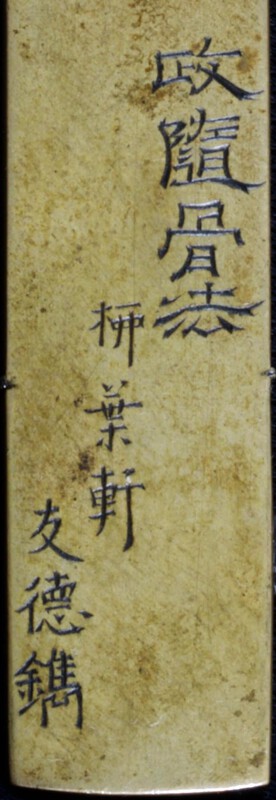 政隨骨法
柳葉軒
友德鐫